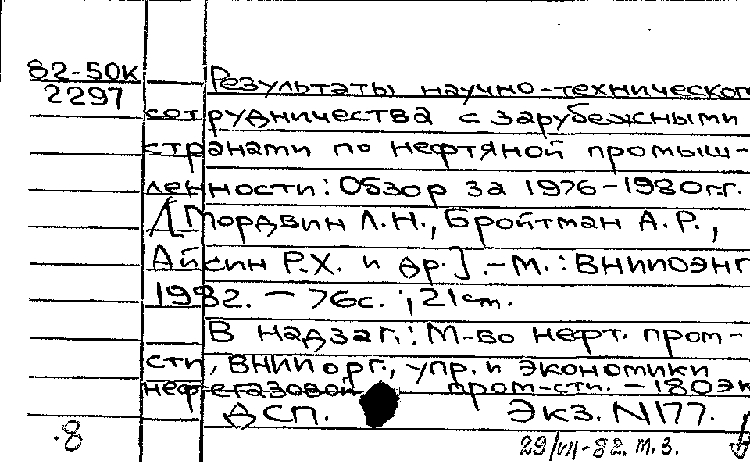 82-50К
2297
Результаты научно-техническог
сотрудничества с зарубежными
странами по нефтяной промыш-
ленности: Обзор за 1976-1980гг.
/[Мордвин Л.Н., Бройтман А.Р.,
Айсин Р.Х. и др.].-М.: ВНИИОЭНГ
1982. - 76с.; 21cm.
В надзаг.: М-во нефт. пром-
сти, ВНИИ орг., упр. и экономики
нефтегазовой пром-сти. - 180эк
ДСП. Экз. N177.
.8
29/VII-82. т.з.